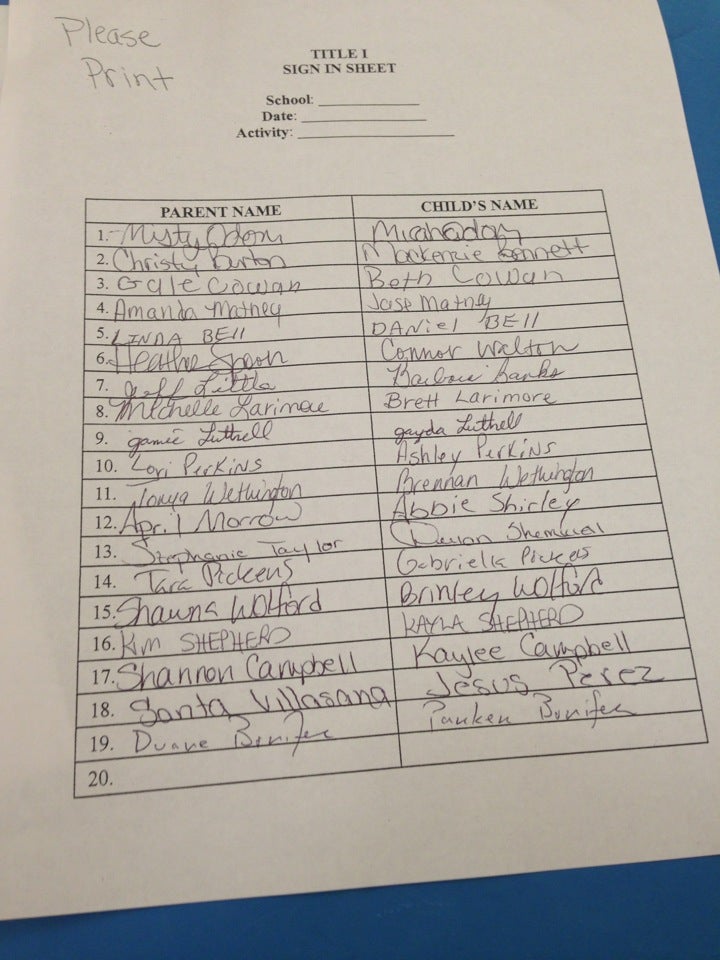 Please
Print
TITLE I
SIGN IN SHEET
School: ____________
Date: ____________
Activity: ____________
PARENT NAME CHILD'S NAME
1. Misty Odom Micah Odom
2. Christy Burton Mackenzie Bennett
3. Gale Cowan Beth Cowan
4. Amanda Matney Jase Matney
5. LINDA BEll DANiel BEll
6. Heather Spoon Connor Walton
7. Jeff Little Banks
8. Mitchelle Larimore Brett Larimore
9. Jamie Luttrell Jayda Luttrell
10. Lori Perkins Ashley Perkins
11. Tonya Wethington Brennan Wethington
12. April Morrow Abbie Shirley
13. Stephanie Taylor
14. Tara Pickens Gabriella Pickens
15. Shawna Wolford Brinley Wolford
16. Kim SHEPHERD KAYLA SHEPHERD
17. Shannon Campbell Kaylee Campbell
18. Santa Villasana Jesus Perez
19. Duane Bonifer Bonifer
20.